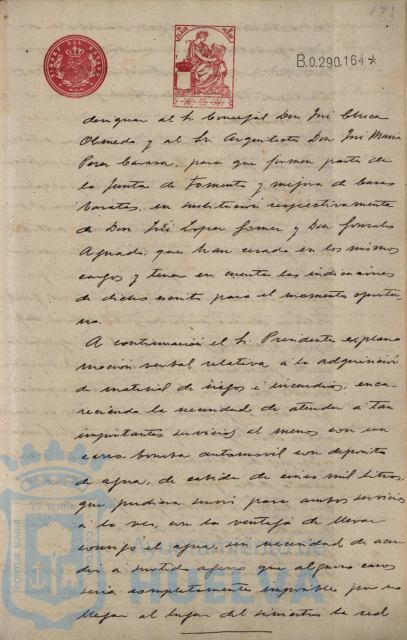 B.0.290.164*
designar al Sr. Concejal Don José Checa
Olmedo y al Sr. Arquitecto Don José María
Perez Carasa, para que formen parte de
la Junta de Fomento y mejora de Casas
baratas, en sustitución respectivamente
de Don José Lopez Gomez y Don Gonzalo
Aguado, que han cesado en los mismos
cargos y tener en cuenta las indicaciones
de dicho escrito para el momento oportu-
no.
A continuación el Sr. Presidente explana
moción verbal relativa a la adquisición
de material de riegos é incendios, enca-
reciendo la necesidad de atender a tan
importantes servicios al menos con un
carro bomba automovil con deposito
de agua, de cabida de cinco mil litros,
que pudiera servir para ambos servicios
a la vez, con la ventaja de llevar
consigo el agua, sin necesidad de acu-
dir a surtido ageno que algunos casos
seria completamente imposible por no
llegar al lugar del siniestro la red
Ayuntamiento de
HUELVA
PORTUS MARIS
ET TERRAE